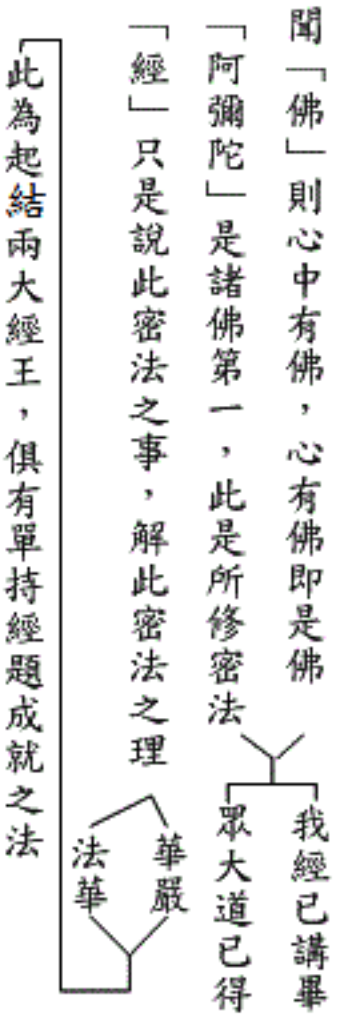 聞「佛」則心中有佛，心有佛即是佛
「阿彌陀」是諸佛第一，此是所修密法
我經已講畢
眾大道已得
「經」只是說此密法之事，解此密法之理
華嚴
法華
此為起結兩大經王，俱有單持經題成就之法